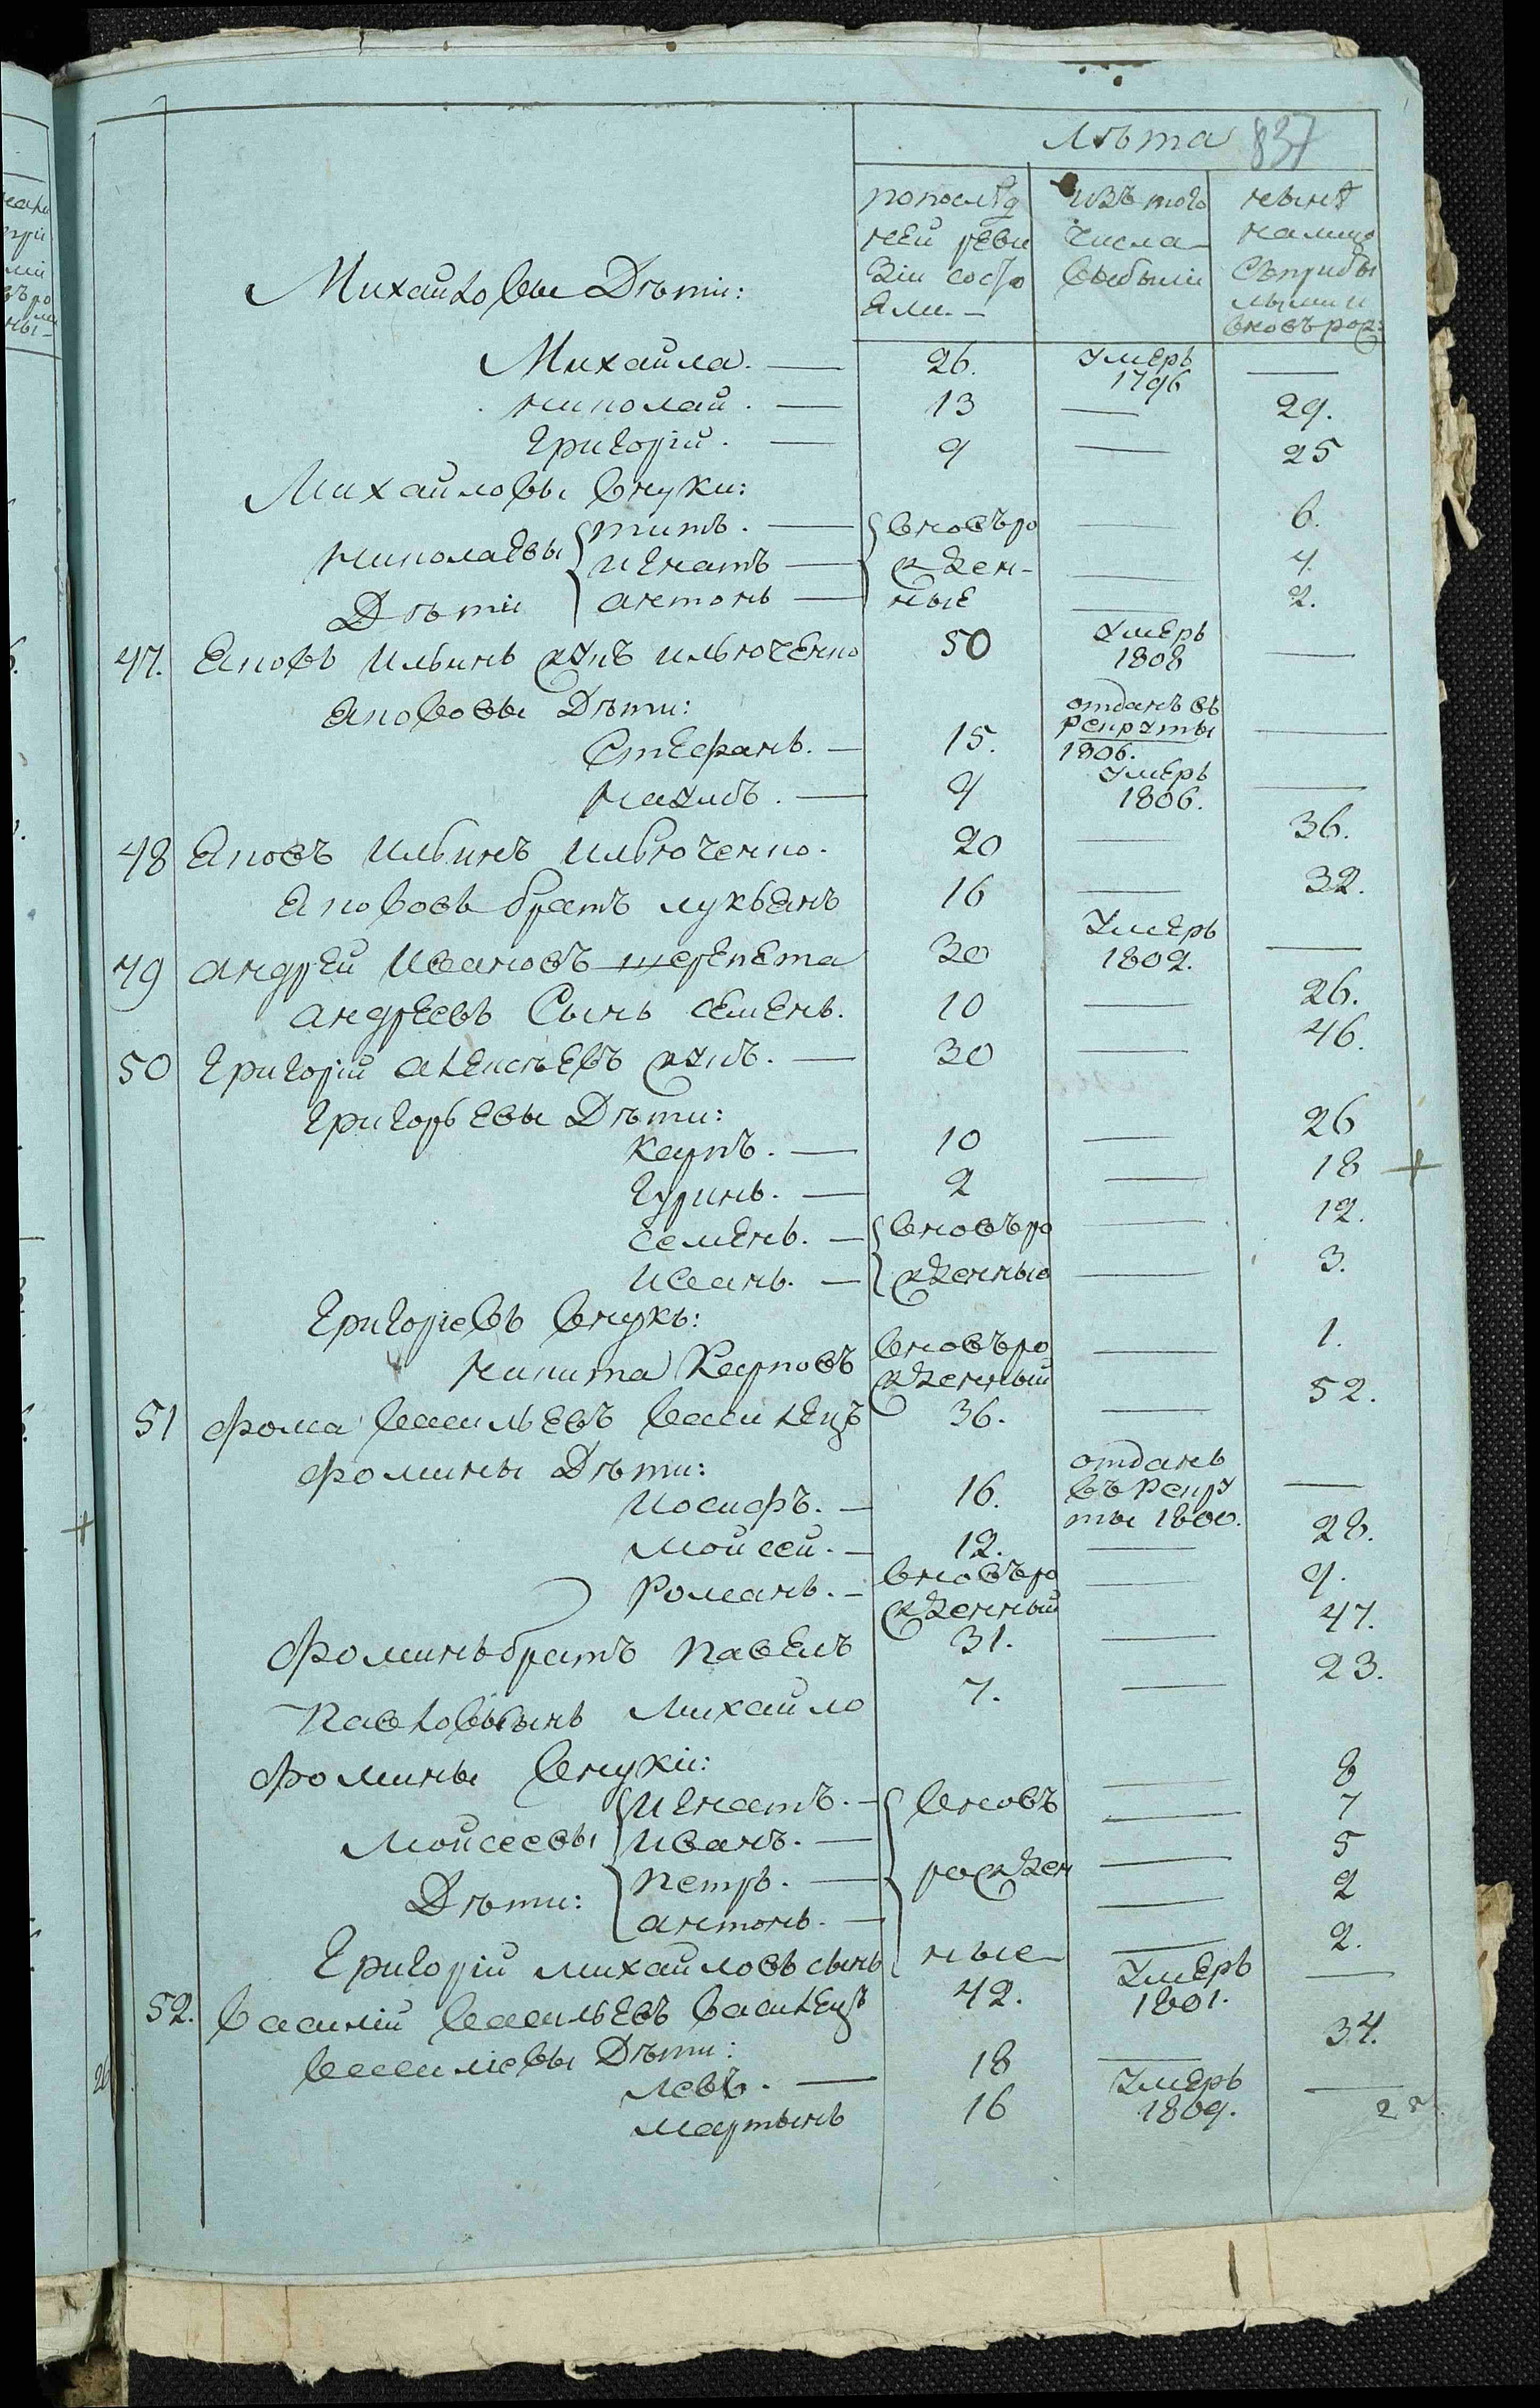 лѣта 837
по послѣд
ней реви
зіи состо
яли. —
изъ того
числа
выбыли
нынѣ
на лицо
съ прибы
лыми и
вновь рож:
Михайловы Дѣти:
Михаила. — 26. умеръ 1796 —
Николай. — 13 — 29.
Григорій. — 9 — 25
Михайловы внуки:
Титъ. — вновь ро — 6.
Николаевы Игнатъ — жден- — 4.
Дѣти Антонъ — ные — 2.
47. Яковъ Ильинъ жукъ Ильюченко 50 умеръ 1808 —
Яковевы Дѣти:
Стефанъ. — 15. отданъ въ рекруты 1806. —
Наумъ. — 9 умеръ 1806. —
48 Яковъ Ильинъ Ильюченко. 20 — 36.
Яковевъ братъ Лукьянъ 16 — 32.
49 Андрей Ивановъ Шерепета 30 умеръ 1802. —
Андреевъ Сынъ Семенъ. 10 — 26.
50 Григорій Алексѣевъ жукъ. — 30 — 46.
Григорьевы Дѣти:
Карпъ. — 10 — 26
Гуринъ. — 2 — 18 +
Семенъ. — вновь ро — 12.
Иванъ. — жденныя — 3.
Григоріевъ внукъ:
Никита Карповъ вновь ро жденный — 1.
51 Фома Васильевъ Василецъ 36. — 52.
Фомины Дѣти:
Иосифъ. — 16. отданъ въ рекру ты 1800. —
Мойсей. — 12. — 28.
Романъ. — вновь ро жденный — 9.
Фоминъ братъ Павелъ 31. — 47.
Павловъ сынъ Михайло 7. — 23.
Фомины внуки:
Игнатъ. — вновь — 8
Мойсеевы Иванъ. — — 7
Дѣти: Петръ. — рожден — 5
Антонъ. — — 2
Григорій Михайловъ сынъ ные — 2.
52. Василій Васильевъ Василецъ 42. умеръ 1801. —
Василіевы Дѣти:
Левъ. — 18 — 34.
Мартынъ 16 умеръ 1809. —